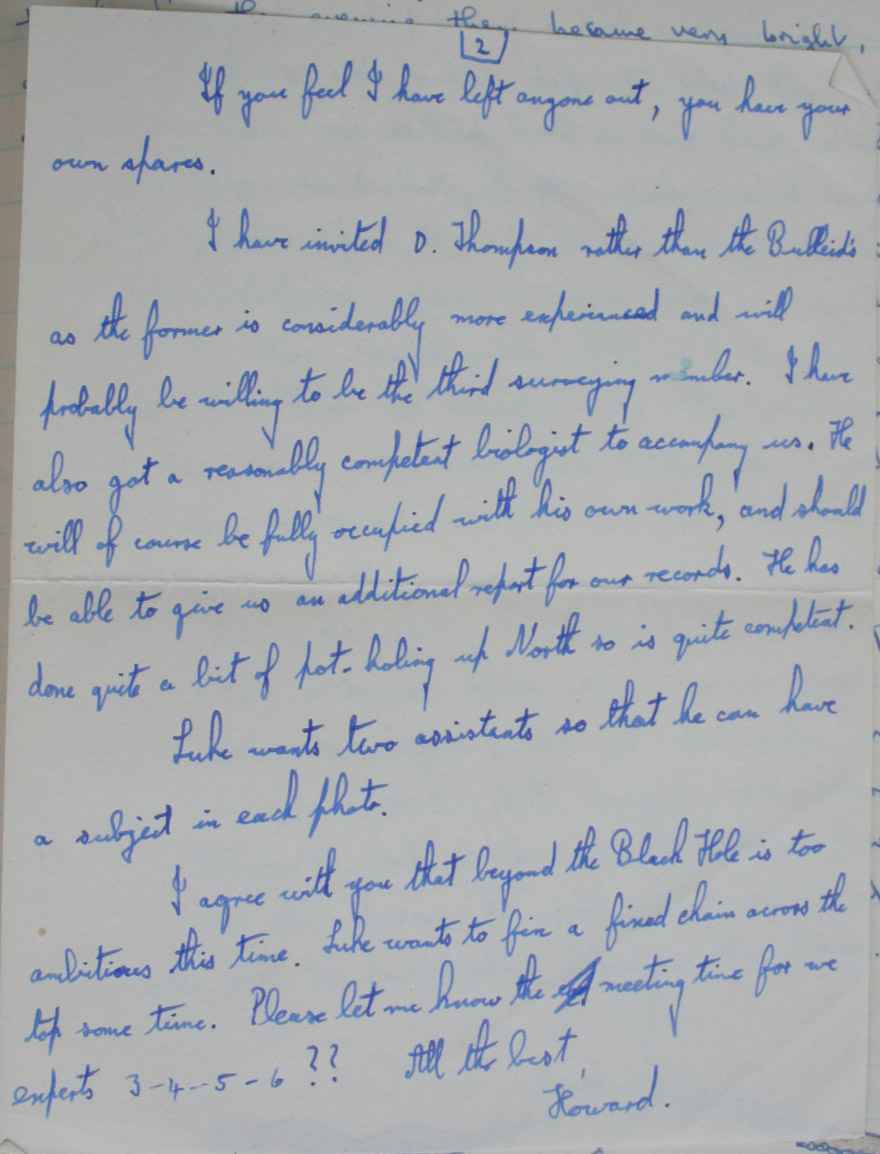 they became very bright,
2
If you feel I have left anyone out, you have your
own spares.
I have invited D. Thompson rather than the Bulleid's
as the former is considerably more experienced and will
probably be willing to be the third surveying member. I have
also got a reasonably competent biologist to accompany us. He
will of course be fully occupied with his own work, and should
be able to give us an additional report for our records. He has
done quite a bit of pot-holing up North so is quite competent.
Luke wants two assistants so that he can have
a subject in each photo.
I agree with you that beyond the Black Hole is too
ambitious this time. Luke wants to fix a fixed chain across the
top some time. Please let me know the meeting time for we
experts 3-4-5-6 ?? All the best,
Howard.